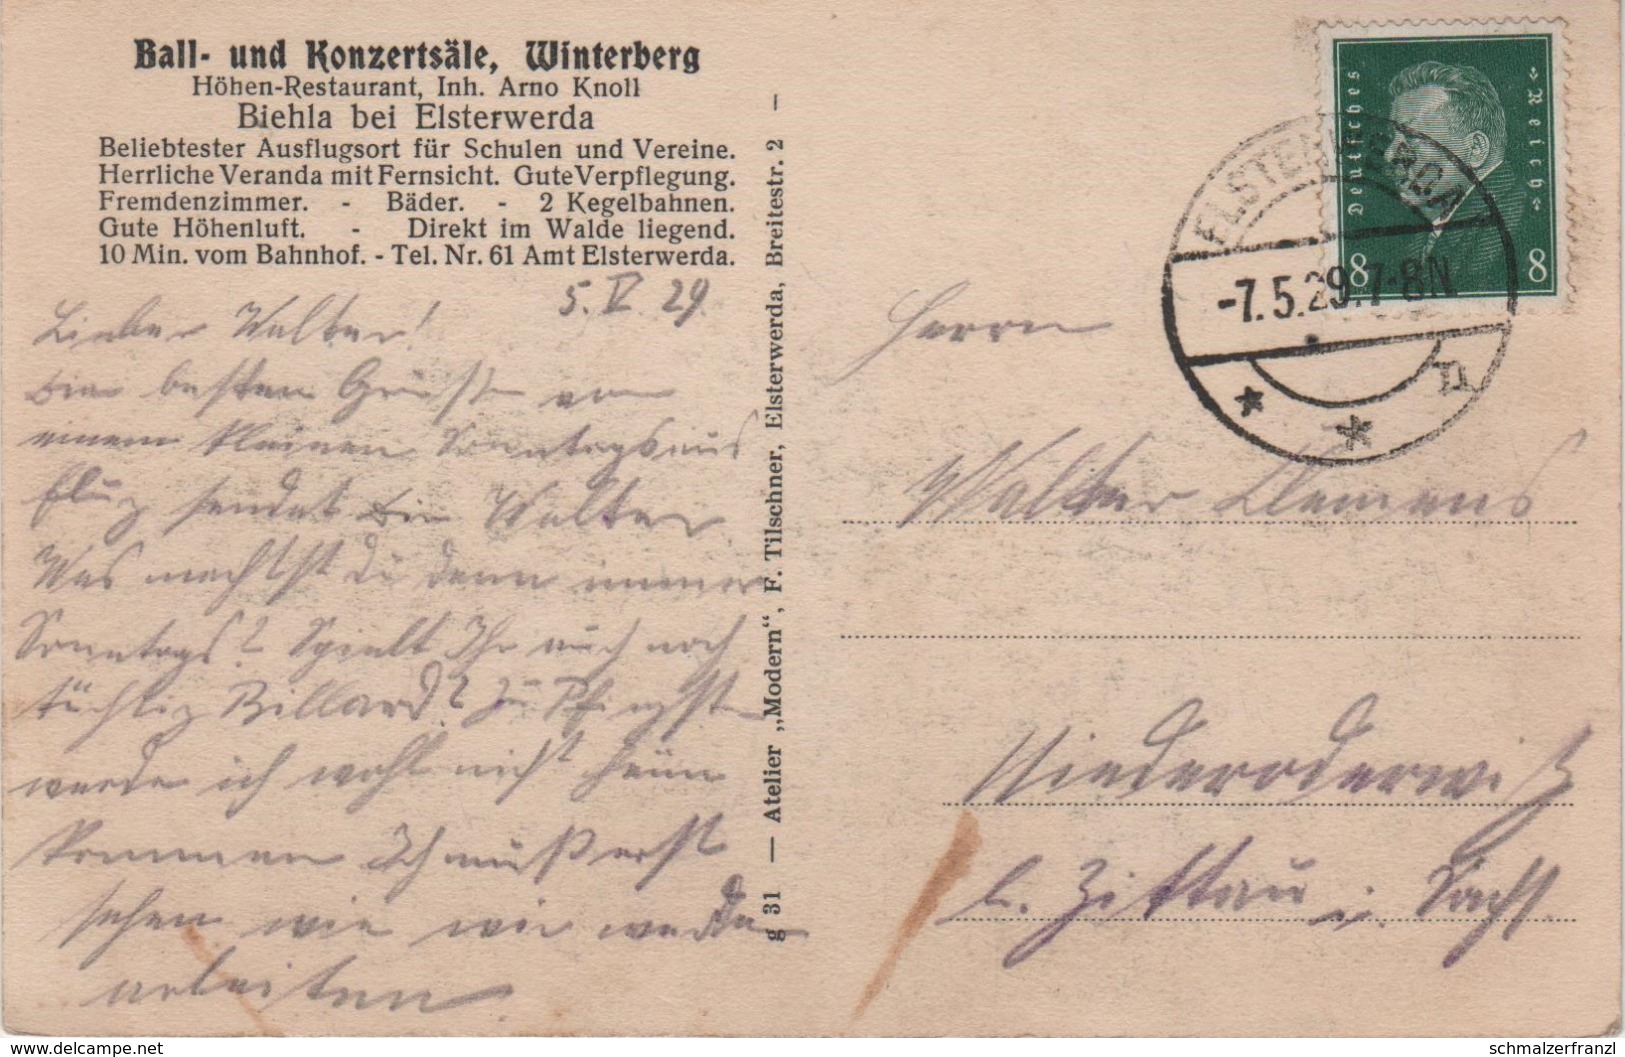 Ball- und Konzertsäle, Winterberg
Höhen-Restaurant, Inh. Arno Knoll
Biehla bei Elsterwerda
Beliebtester Ausflugsort für Schulen und Vereine.
Herrliche Veranda mit Fernsicht. Gute Verpflegung.
Fremdenzimmer. - Bäder. - 2 Kegelbahnen.
Gute Höhenluft. - Direkt im Walde liegend.
10 Min. vom Bahnhof. - Tel. Nr. 61 Amt Elsterwerda.
5. V. 29.
Lieber Walter!
Die besten Grüße von
einem kleinen Sonntagsaus
flug sendet Dir Walter.
Was machtst Du denn immer
Sonntags? Spielt Ihr auch noch
tüchtig Billard? Zu Pfingsten
werde ich wohl nicht heim
kommen Ich muß erst
sehen wie wir
arbeiten.
g 31 — Atelier „Modern“, F. Tilschner, Elsterwerda, Breitestr. 2 —
Deutsches Reich
8 8
ELSTERWERDA
-7.5.29.7-8N
* * u
Herrn
Walter Clemens
Niederoderwitz
b. Zittau i. Sachs.
www.delcampe.net
schmalzerfranzl